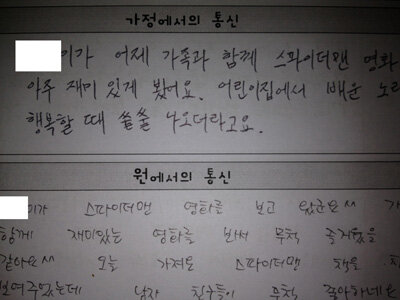 가정에서의 통신
이가 어제 가족과 함께 스파이더맨 영화
아주 재미 있게 봤어요. 어린이집에서 배운 노래
행복할 때 쏠쏠 나오더라고요.
원에서의 통신
이가 스파이더맨 영화를 보고 왔군요^^
함께 재미있는 영화를 봐서 무척 즐거웠을
같아요^^ 오늘 가져온 스파이더맨 책을
보여주었는데 남자 친구들이 무척 좋아하네요